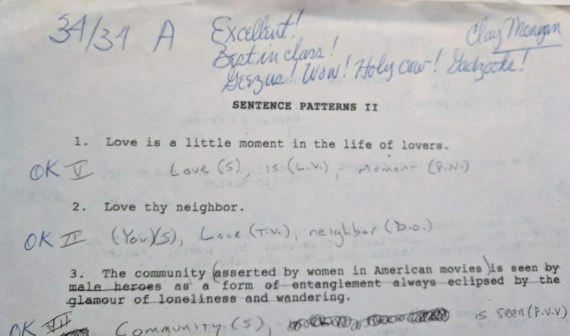 34/34 A Excellent! Clay Morgan
Best in class!
Geezus! Wow! Holy cow! Gadzooks!
SENTENCE PATTERNS II
1. Love is a little moment in the life of lovers.
OK V Love (S), is (L.V.), moment (P.N.)
2. Love thy neighbor.
OK II (You)(S), Love (T.V.), neighbor (D.O.)
3. The community (asserted by women in American movies) is seen by
male heroes as a form of entanglement always eclipsed by the
glamour of loneliness and wandering.
OK VII Community (S), is seen (P.V.V)